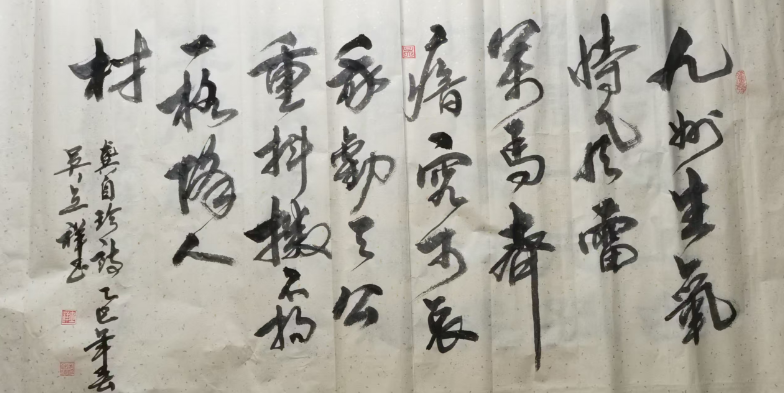 九州生氣
恃風雷
萬馬齊
瘖究可哀
我勸天公
重抖擻不拘
一格降人
材
龔自珍詩 乙巳年春
吴立祥书